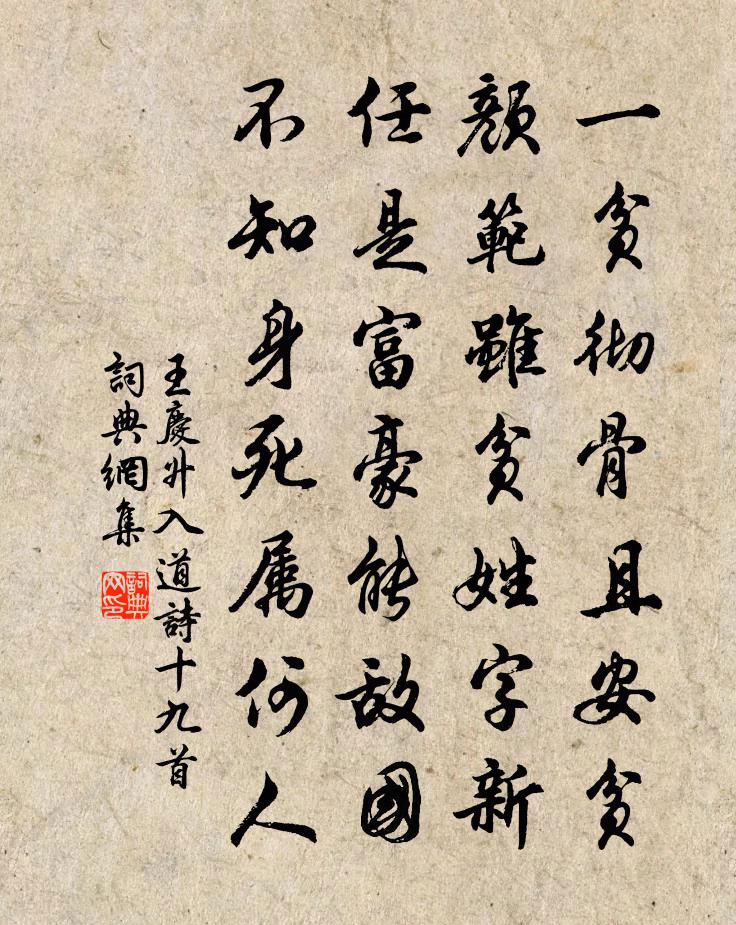 一貧徹骨且安貧
顏範雖貧姓字新
任是富豪能敵國
不知身死属何人
王慶升入道詩十九首
詞典網集
詞典網印